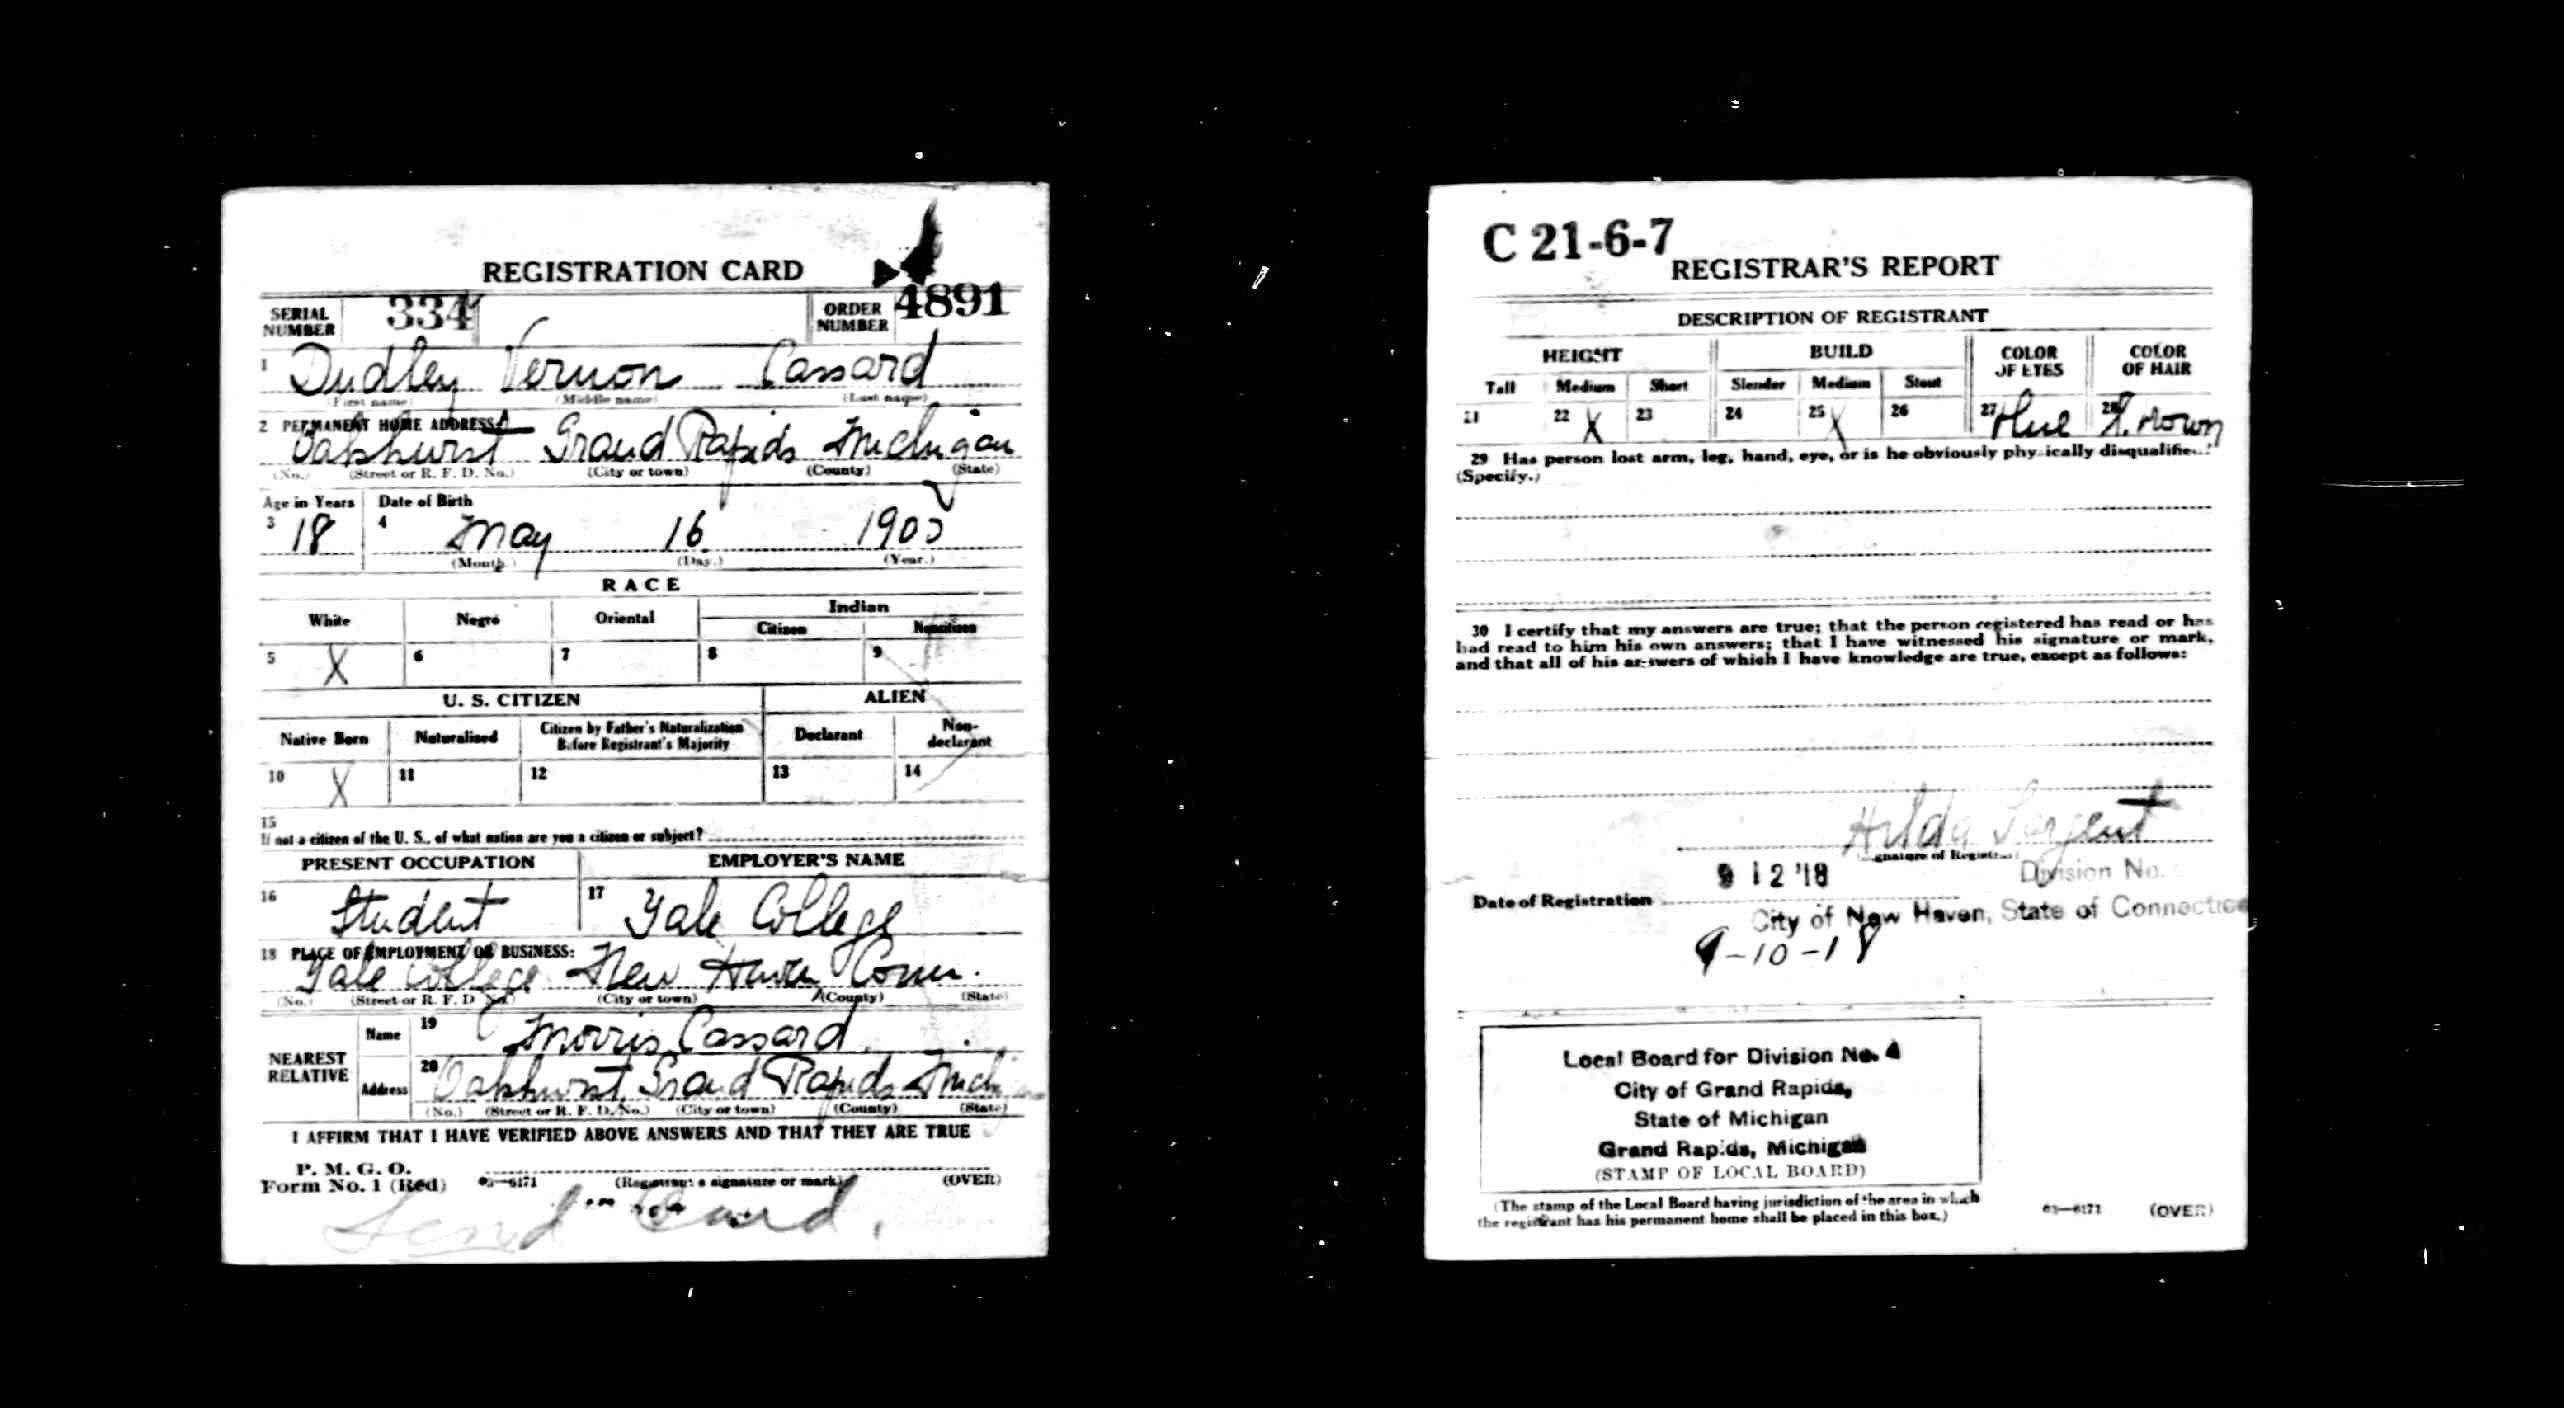 REGISTRATION CARD
SERIAL NUMBER 334 ORDER NUMBER 4891
1 Dudley Vernon Cassard
(First name) (Middle name) (Last name)
2 PERMANENT HOME ADDRESS:
Oakhurst Grand Rapids Michigan
(No.) (Street or R. F. D. No.) (City or town) (County) (State)
Age in Years Date of Birth
3 18 4 May 16 1900
(Month.) (Day.) (Year.)
RACE
White Negro Oriental Indian
Citizen Noncitizen
5 X 6 7 8 9
U. S. CITIZEN ALIEN
Native Born Naturalized Citizen by Father's Naturalization Before Registrant's Majority Declarant Non-declarant
10 X 11 12 13 14
15
If not a citizen of the U. S., of what nation are you a citizen or subject?
PRESENT OCCUPATION EMPLOYER'S NAME
16 Student 17 Yale College
18 PLACE OF EMPLOYMENT OR BUSINESS:
Yale College New Haven Conn.
(No.) (Street or R. F. D. No.) (City or town) (County) (State)
NEAREST RELATIVE Name 19 Morris Cassard
Address 20 Oakhurst Grand Rapids Mich
(No.) (Street or R. F. D. No.) (City or town) (County) (State)
I AFFIRM THAT I HAVE VERIFIED ABOVE ANSWERS AND THAT THEY ARE TRUE
P. M. G. O.
Form No. 1 (Red) 03—6171 (Registrant's signature or mark) (OVER)
Send Card.
C 21-6-7
REGISTRAR'S REPORT
DESCRIPTION OF REGISTRANT
HEIGHT BUILD COLOR OF EYES COLOR OF HAIR
Tall Medium Short Slender Medium Stout
21 22 X 23 24 25 X 26 27 Blue 28 Brown
29 Has person lost arm, leg, hand, eye, or is he obviously physically disqualified?
(Specify.)
30 I certify that my answers are true; that the person registered has read or has
had read to him his own answers; that I have witnessed his signature or mark,
and that all of his answers of which I have knowledge are true, except as follows:
Hilda Sargent
(Signature of Registrar)
9 12 '18 Division No.
Date of Registration
City of New Haven, State of Connecticut
9-10-18
Local Board for Division No. 4
City of Grand Rapids,
State of Michigan
Grand Rapids, Michigan
(STAMP OF LOCAL BOARD)
(The stamp of the Local Board having jurisdiction of the area in which
the registrant has his permanent home shall be placed in this box.)
03—6171 (OVER)